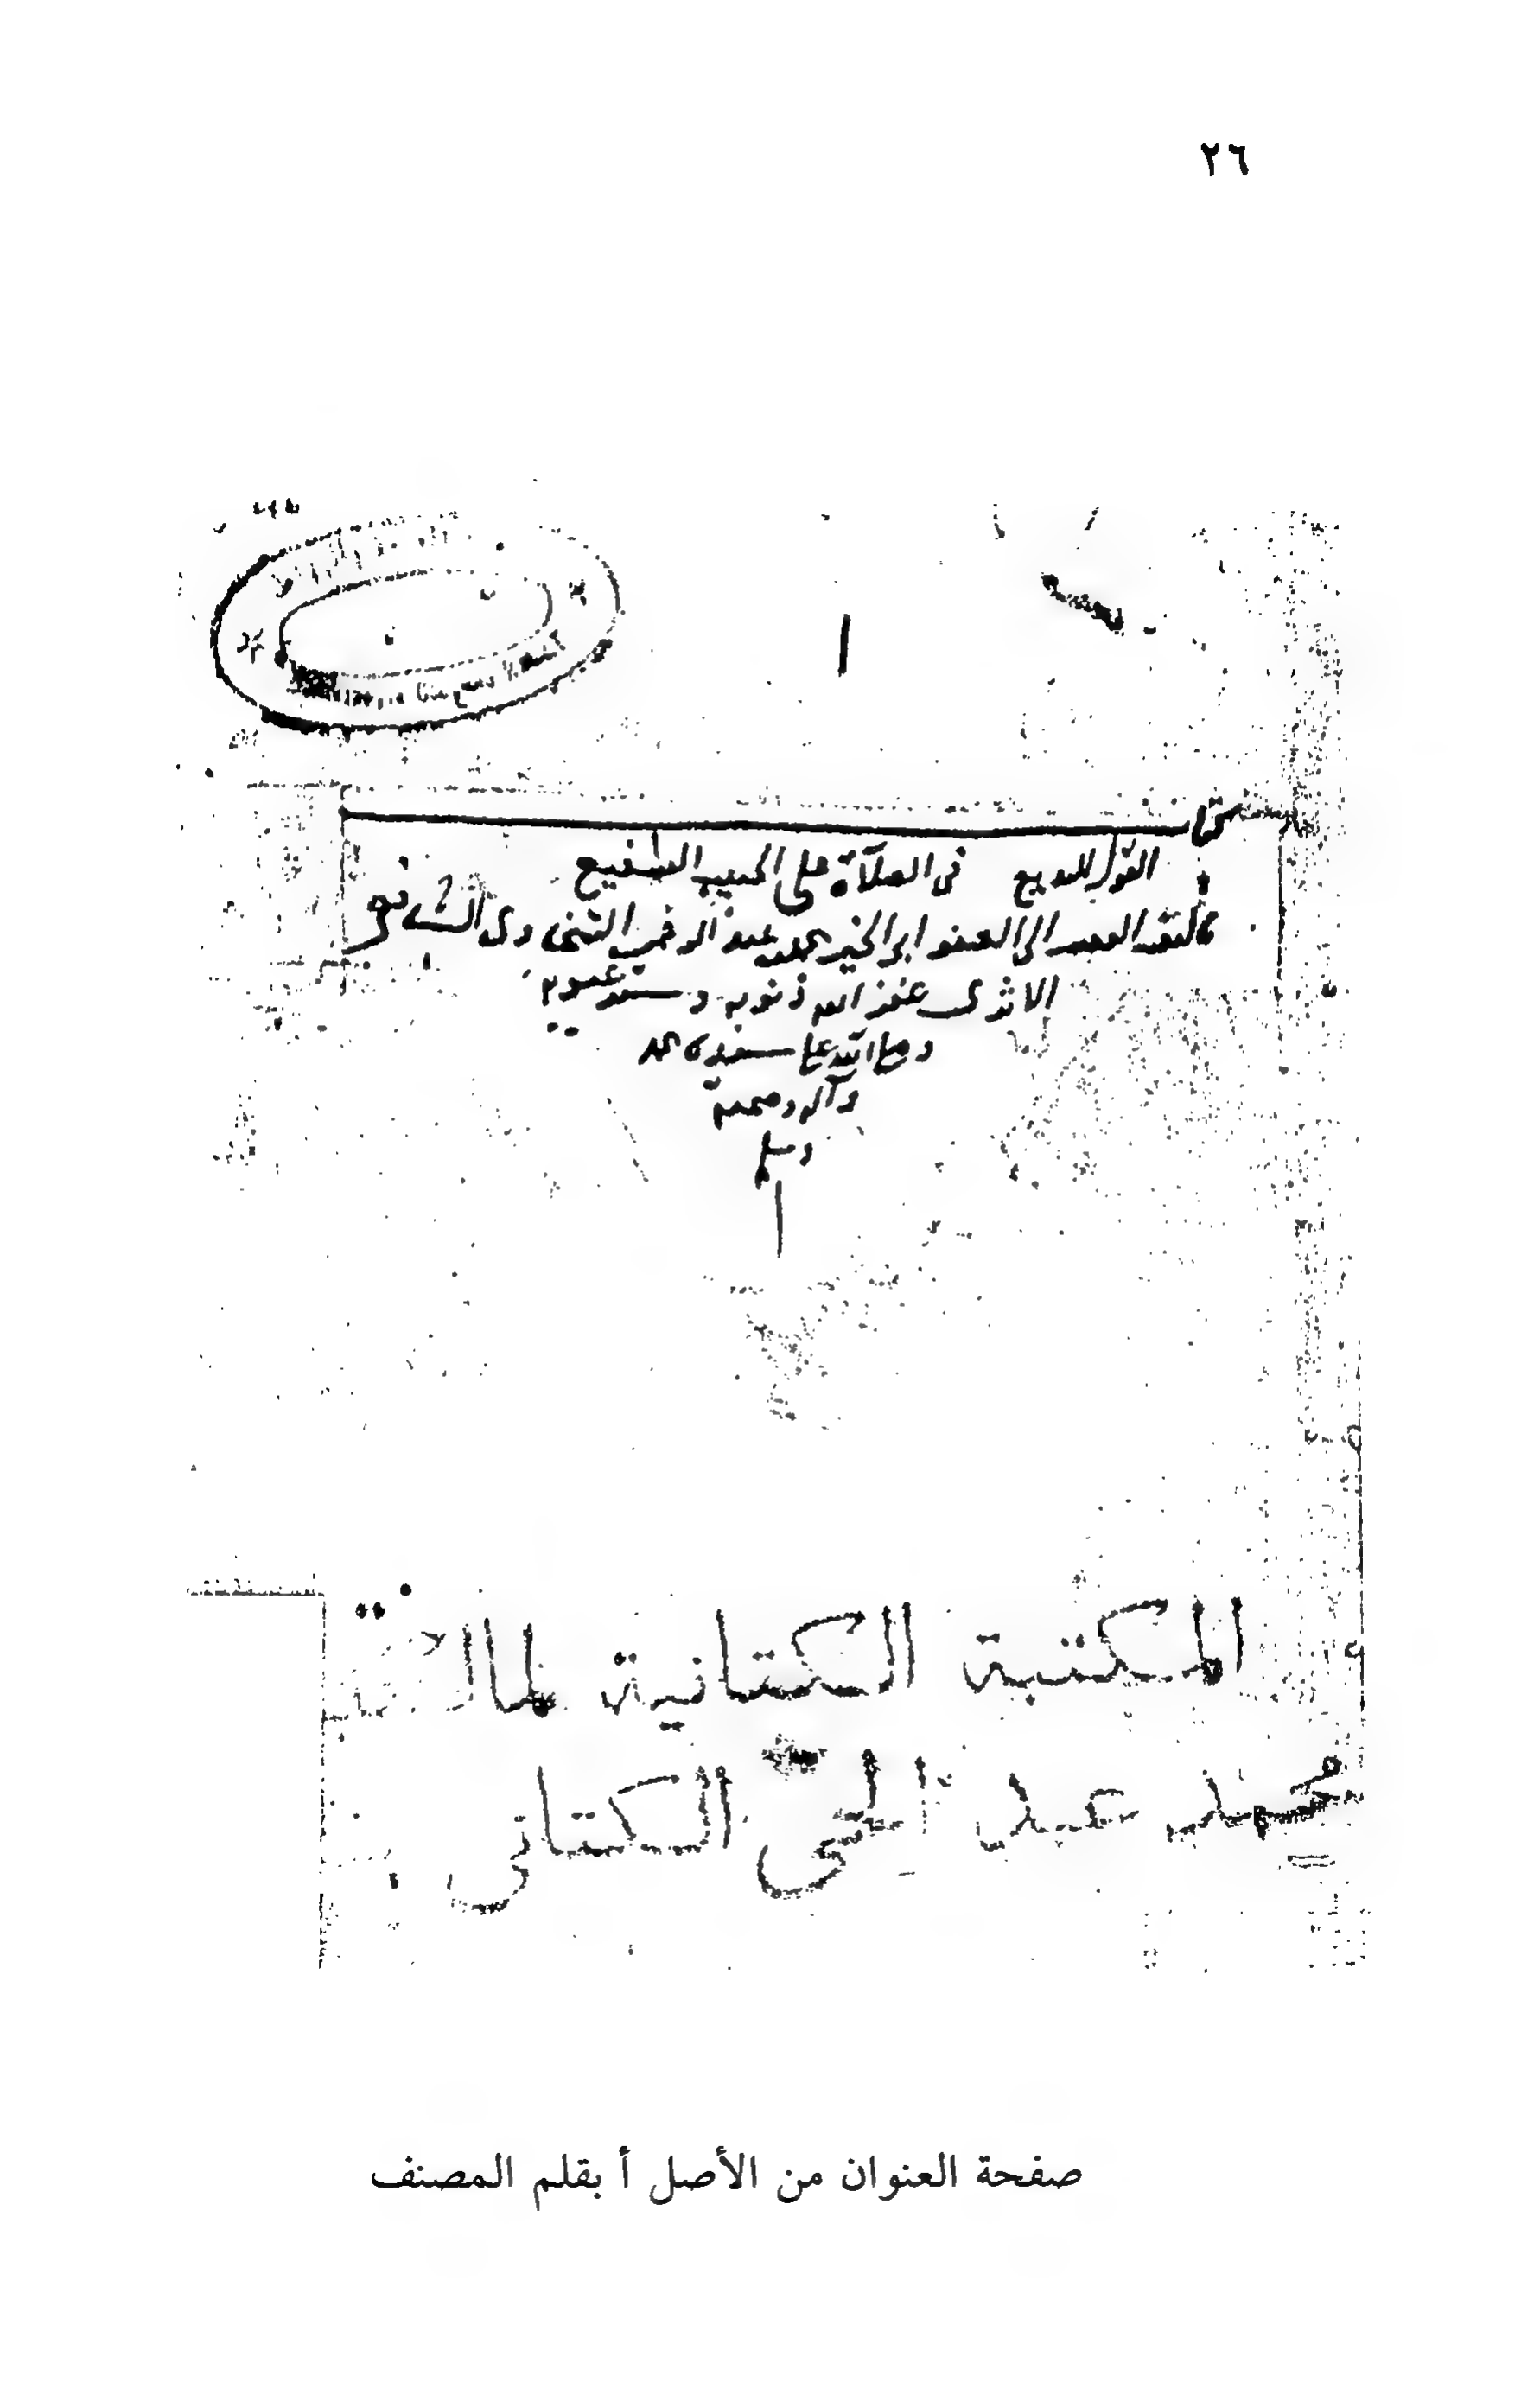 ٢٦
كتاب
القول البديع في الصلاة على الحبيب الشفيع
تأليف الفقير الى العفو ابى الخير محمد بن عبد الرحمن السخاوى الشافعى
الاثرى غفر الله ذنوبه وستر عيوبه
وصلى الله على سيدنا محمد
وآله وصحبه
وسلم
المكتبة الكتانية لمالكها
محمد عبد الحى الكتانى
صفحة العنوان من الأصل أ بقلم المصنف